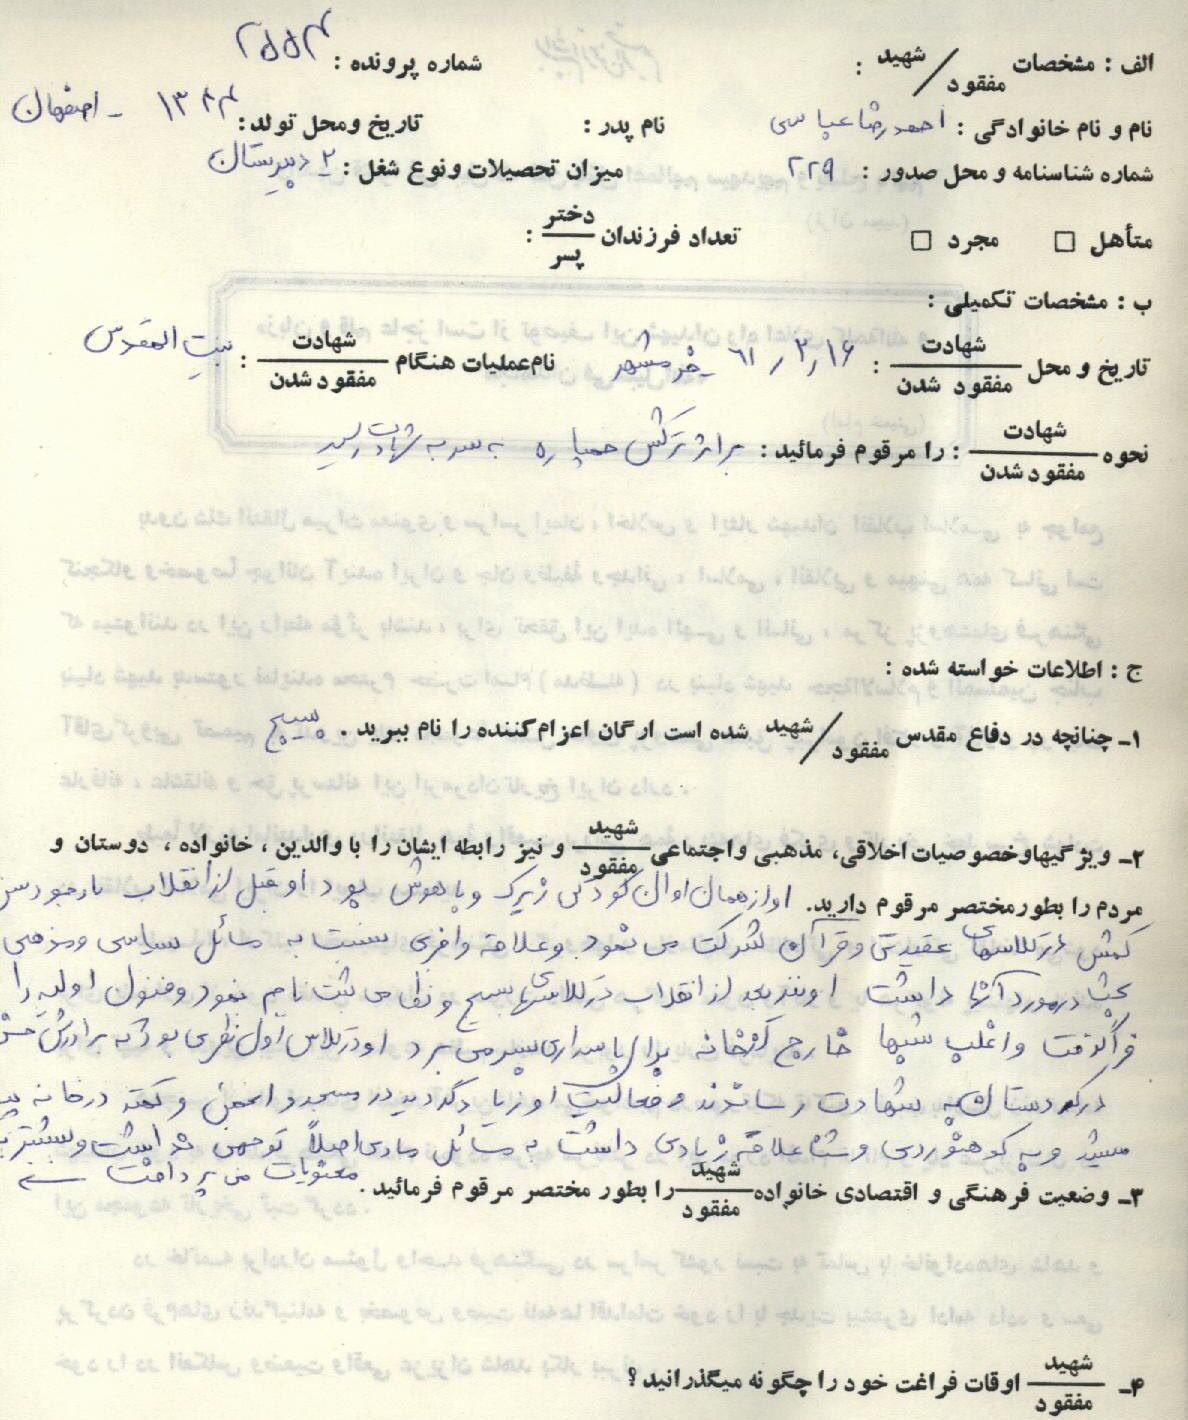 الف : مشخصات شهید / مفقود : شماره پرونده : ۲۵۵۴
نام و نام خانوادگی : احمدرضا عباسی نام پدر : تاریخ ومحل تولد : ۱۳۴۴ - اصفهان
شماره شناسنامه و محل صدور : ۲۲۹ میزان تحصیلات ونوع شغل : ۲ دبیرستان
متأهل □ مجرد □ تعداد فرزندان دختر / پسر :
ب : مشخصات تکمیلی :
تاریخ و محل شهادت / مفقود شدن : ۶۱/۳/۱۶ - خرمشهر نام عملیات هنگام شهادت / مفقود شدن : بیت المقدس
نحوه شهادت / مفقود شدن : را مرقوم فرمائید : براثر ترکش خمپاره به سر به شهادت رسید
ج : اطلاعات خواسته شده :
۱ـ چنانچه در دفاع مقدس شهید / مفقود شده است ارگان اعزام کننده را نام ببرید . بسیج
۲ـ ویژگیهاوخصوصیات اخلاقی، مذهبی واجتماعی شهید / مفقود و نیز رابطه ایشان را با والدین ، خانواده ، دوستان و
مردم را بطور مختصر مرقوم دارید. او از همان اوان کودکی زیرک و با هوش بود او قبل از انقلاب باوجود سن
کمش در کلاسهای عقیدتی و قرآن شرکت می نمود و علاقه وافری نسبت به مسائل سیاسی و مذهبی
بحث در مورد آنها داشت او نیز بعد از انقلاب در کلاسهای بسیج و نظامی ثبت نام نمود و فنون اولیه را
فراگرفت و اغلب شبها خارج از خانه برای پاسداری بسر می برد او در کلاس اول نظری بود که برادرش
در کردستان به شهادت رساندند و فعالیت او زیاد گردید در مسجد و انجمن و کمتر در خانه
میشد و به کوهنوردی و شنا علاقه زیادی داشت به مسائل مادی اصلاً توجهی نداشت و بیشتر به
معنویات می پرداخت
۳ـ وضعیت فرهنگی و اقتصادی خانواده شهید / مفقود را بطور مختصر مرقوم فرمائید .
۴ـ شهید / مفقود اوقات فراغت خود را چگونه میگذرانید ؟